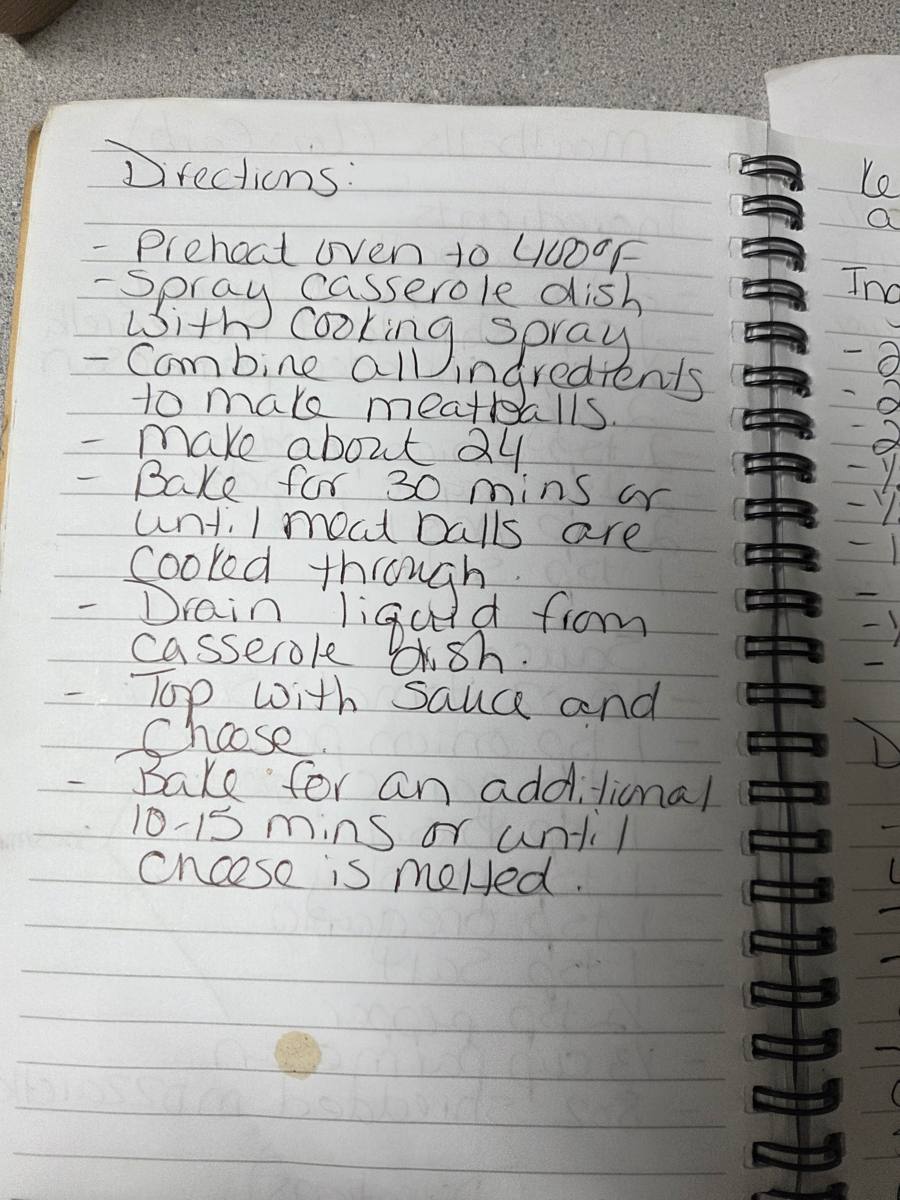 Directions:
- Preheat oven to 400°F
- Spray casserole dish
with cooking spray
- Combine all ingredients
to make meatballs.
- Make about 24
- Bake for 30 mins or
until meat balls are
cooked through.
- Drain liquid from
casserole dish.
- Top with sauce and
Cheese.
- Bake for an additional
10-15 mins or until
cheese is melted.